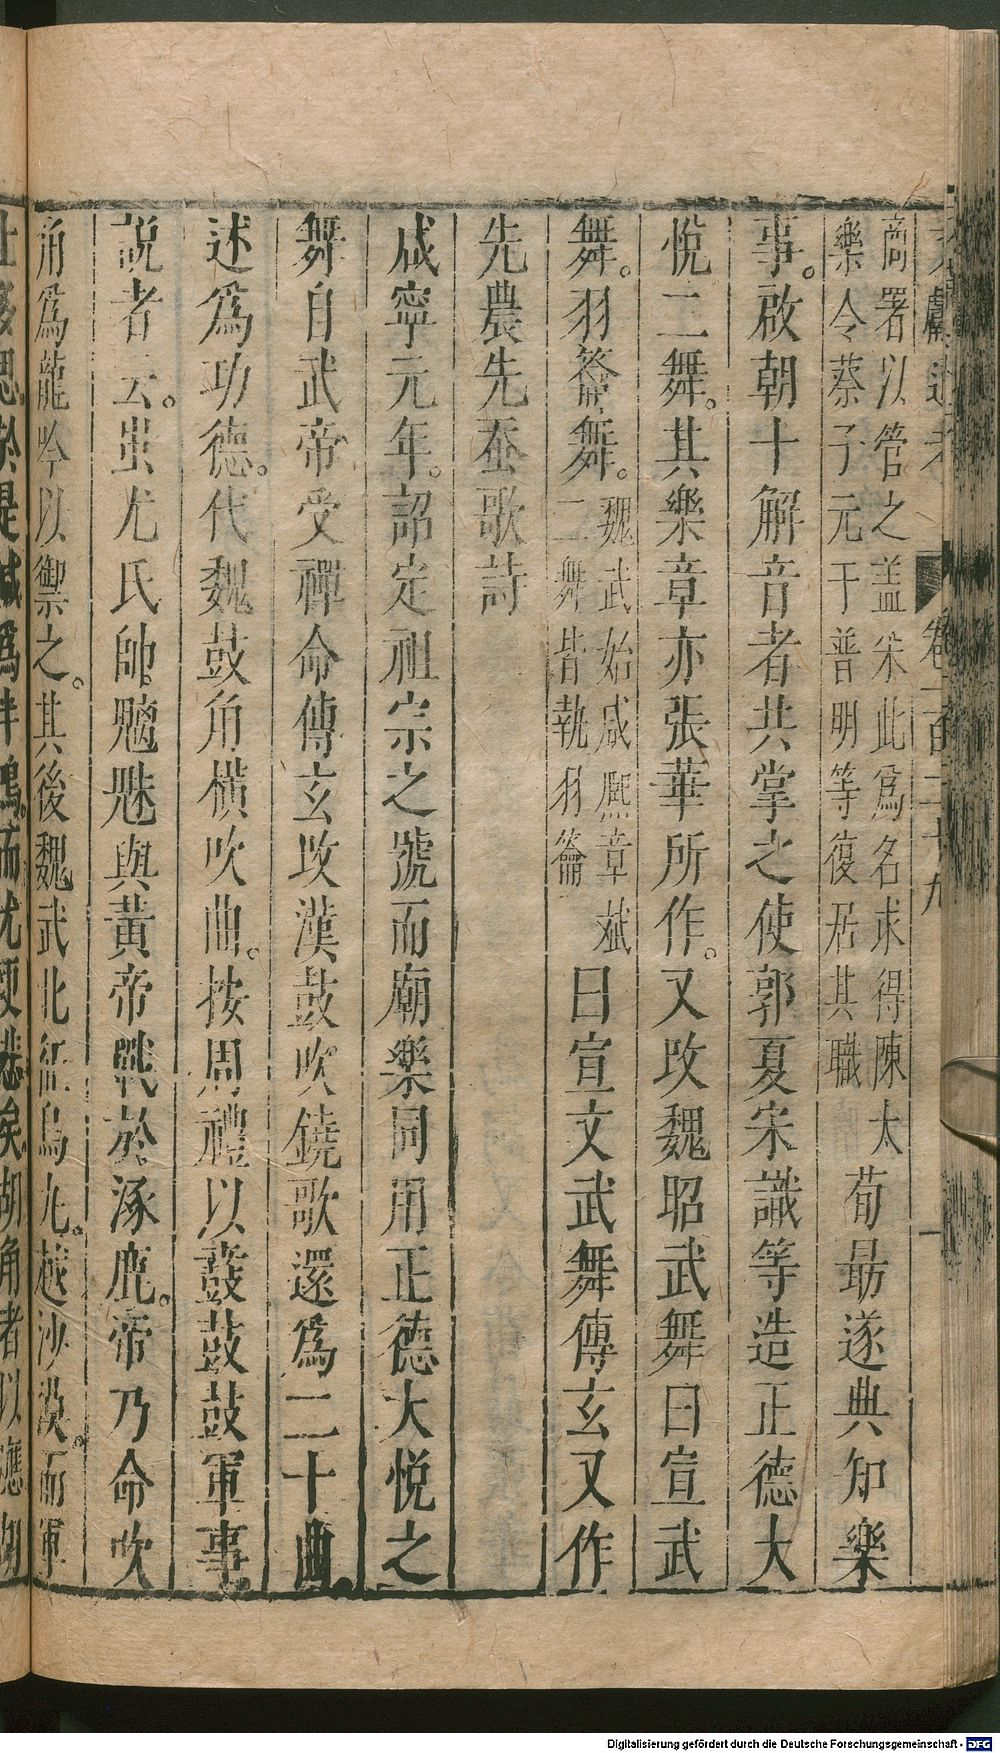 文獻通考 卷一百二十九
商署以管之盖采此爲名求得陳太
樂令蔡子元于普明等復居其職
荀勗遂典知樂
事。啟朝十解音者共掌之使郭夏宋識等造正德大
悅二舞。其樂章亦張華所作。又改魏昭武舞曰宣武
舞。羽籥舞。
魏武始咸熈章斌
二舞皆執羽籥
曰宣文武舞傅玄又作
先農先蚕歌詩
咸寧元年。詔定祖宗之號而廟樂同用正德大悅之
舞自武帝受禪命傅玄改漢鼓吹鐃歌還爲二十曲。
述爲功德。代魏鼓角橫吹曲。按周禮以鼖鼓鼓軍事。
說者云。蚩尤氏帥魑魅與黃帝戰於涿鹿。帝乃命吹
角爲龍吟以禦之。其後魏武北征烏丸。越沙漠。而軍
士多思。於是減爲半鳴。而尤更悲矣。胡角者以應胡
Digitalisierung gefördert durch die Deutsche Forschungsgemeinschaft - DFG